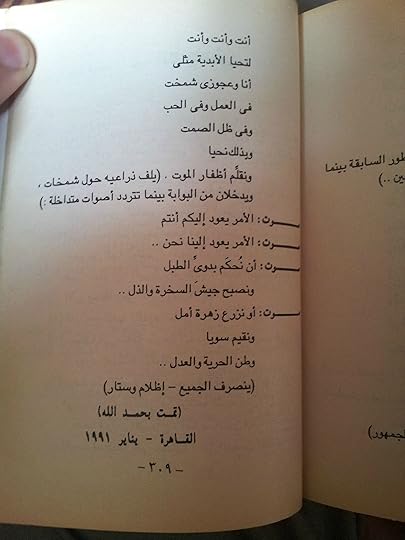 أنت وأنت وأنت
لتحيا الأبدية مثلى
أنا وعجوزى شمخت
فى العمل وفى الحب
وفى ظل الصمت
وبذلك نحيا
ونقلِّم أظفار الموت . (يلف ذراعيه حول شمخات ،
ويدخلان من البوابة بينما تتردد أصوات متداخلة :)
صوت: الأمر يعود إليكم أنتم
صوت: الأمر يعود إلينا نحن ..
صوت: أن نُحكَم بدوىِّ الطبل
ونصبح جيشَ السخرة والذل ..
صوت: أو نزرع زهرة أمل
ونقيم سويا
وطن الحرية والعدل ..
(ينصرف الجميع – إظلام وستار)
(تمت بحمد الله)
القاهرة – يناير ١٩٩١
- ٣٠٩ -
طور السابقة بينما
ين ..)
لجمهور)